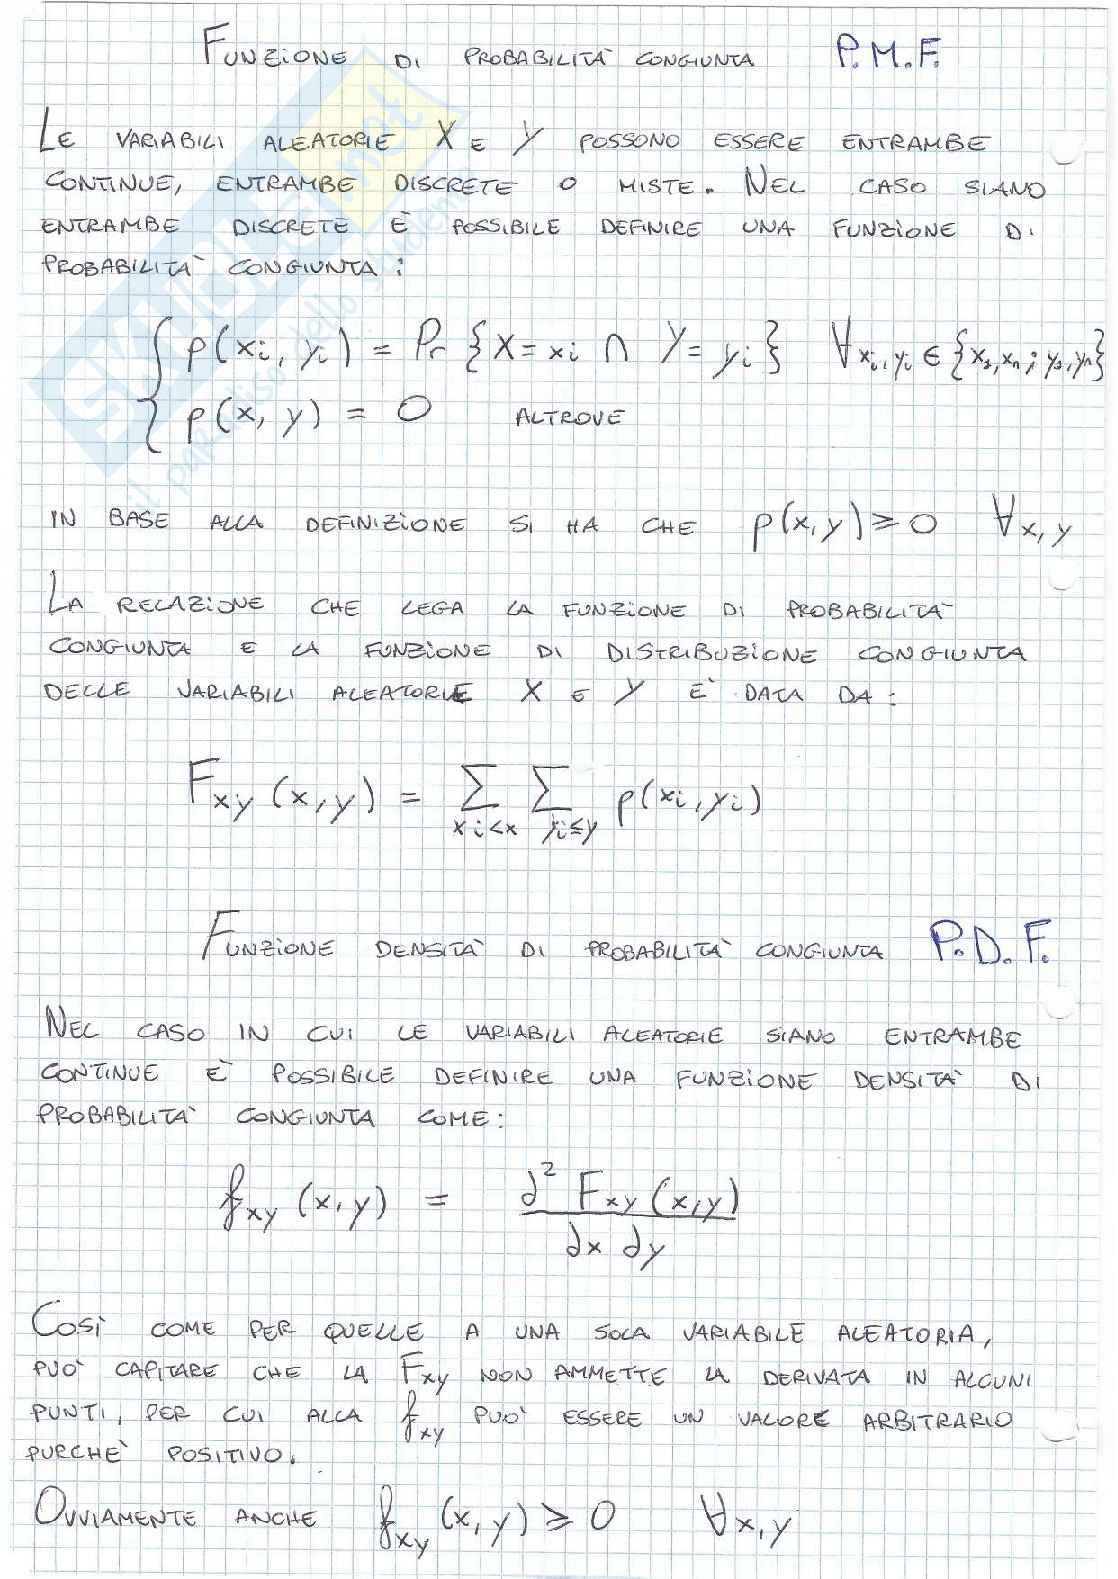 FUNZIONE DI PROBABILITÀ CONGIUNTA P.M.F.
LE VARIABILI ALEATORIE X E Y POSSONO ESSERE ENTRAMBE
CONTINUE, ENTRAMBE DISCRETE O MISTE. NEL CASO SIANO
ENTRAMBE DISCRETE È POSSIBILE DEFINIRE UNA FUNZIONE DI
PROBABILITÀ CONGIUNTA:
p(xi, yi) = Pr {X = xi ∩ Y = yi} ∀xi, yi ∈ {x1, xn; y1, yn}
p(x, y) = 0 ALTROVE
IN BASE ALLA DEFINIZIONE SI HA CHE p(x,y) ≥ 0 ∀x, y
LA RELAZIONE CHE LEGA LA FUNZIONE DI PROBABILITÀ
CONGIUNTA E LA FUNZIONE DI DISTRIBUZIONE CONGIUNTA
DELLE VARIABILI ALEATORIE X E Y È DATA DA:
Fxy (x,y) = Σ xi<x Σ yi≤y p(xi, yi)
FUNZIONE DENSITÀ DI PROBABILITÀ CONGIUNTA P.D.F.
NEL CASO IN CUI LE VARIABILI ALEATORIE SIANO ENTRAMBE
CONTINUE È POSSIBILE DEFINIRE UNA FUNZIONE DENSITÀ DI
PROBABILITÀ CONGIUNTA COME:
fxy (x,y) = ∂² Fxy (x,y)
∂x ∂y
COSÌ COME PER QUELLE A UNA SOLA VARIABILE ALEATORIA,
PUÒ CAPITARE CHE LA Fxy NON AMMETTE LA DERIVATA IN ALCUNI
PUNTI, PER CUI ALLA fxy PUÒ ESSERE UN VALORE ARBITRARIO
PURCHÈ POSITIVO.
OVVIAMENTE ANCHE fxy (x,y) ≥ 0 ∀x,y
SKUOLA.net
il paradiso dello studente